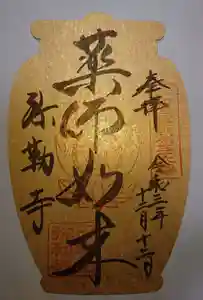 奉拝
令和三年
十二月十二日
薬師如来
弥勒寺